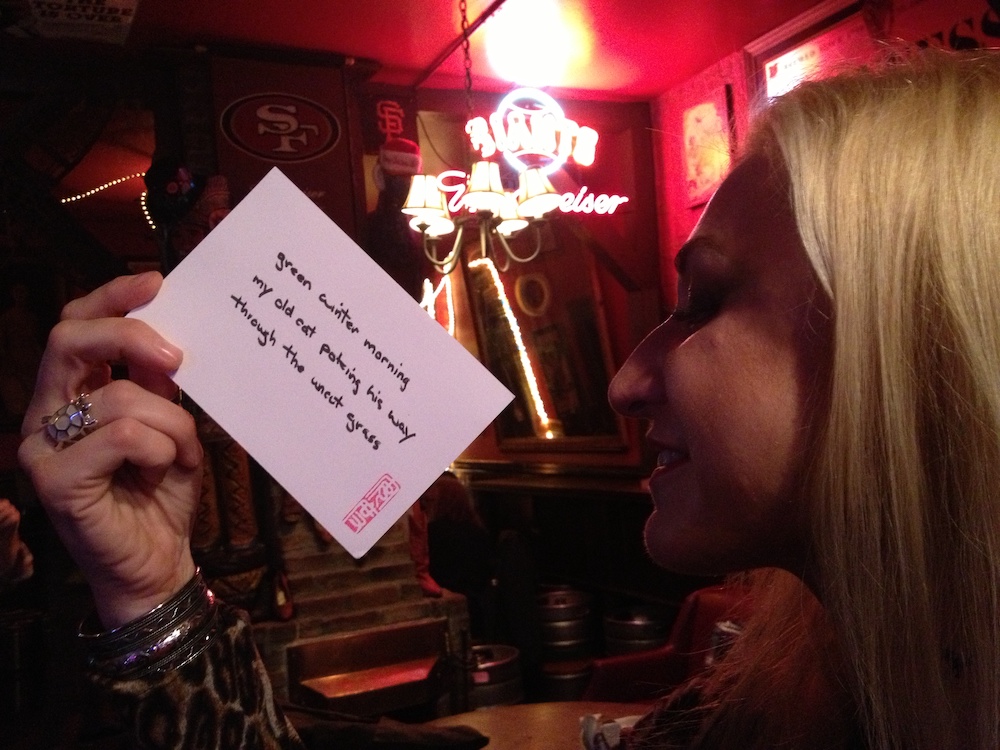 TORTURE
IS OVER
SF
SF
GIANTS
Budweiser
green winter morning
my old cat poking his way
through the uncut grass